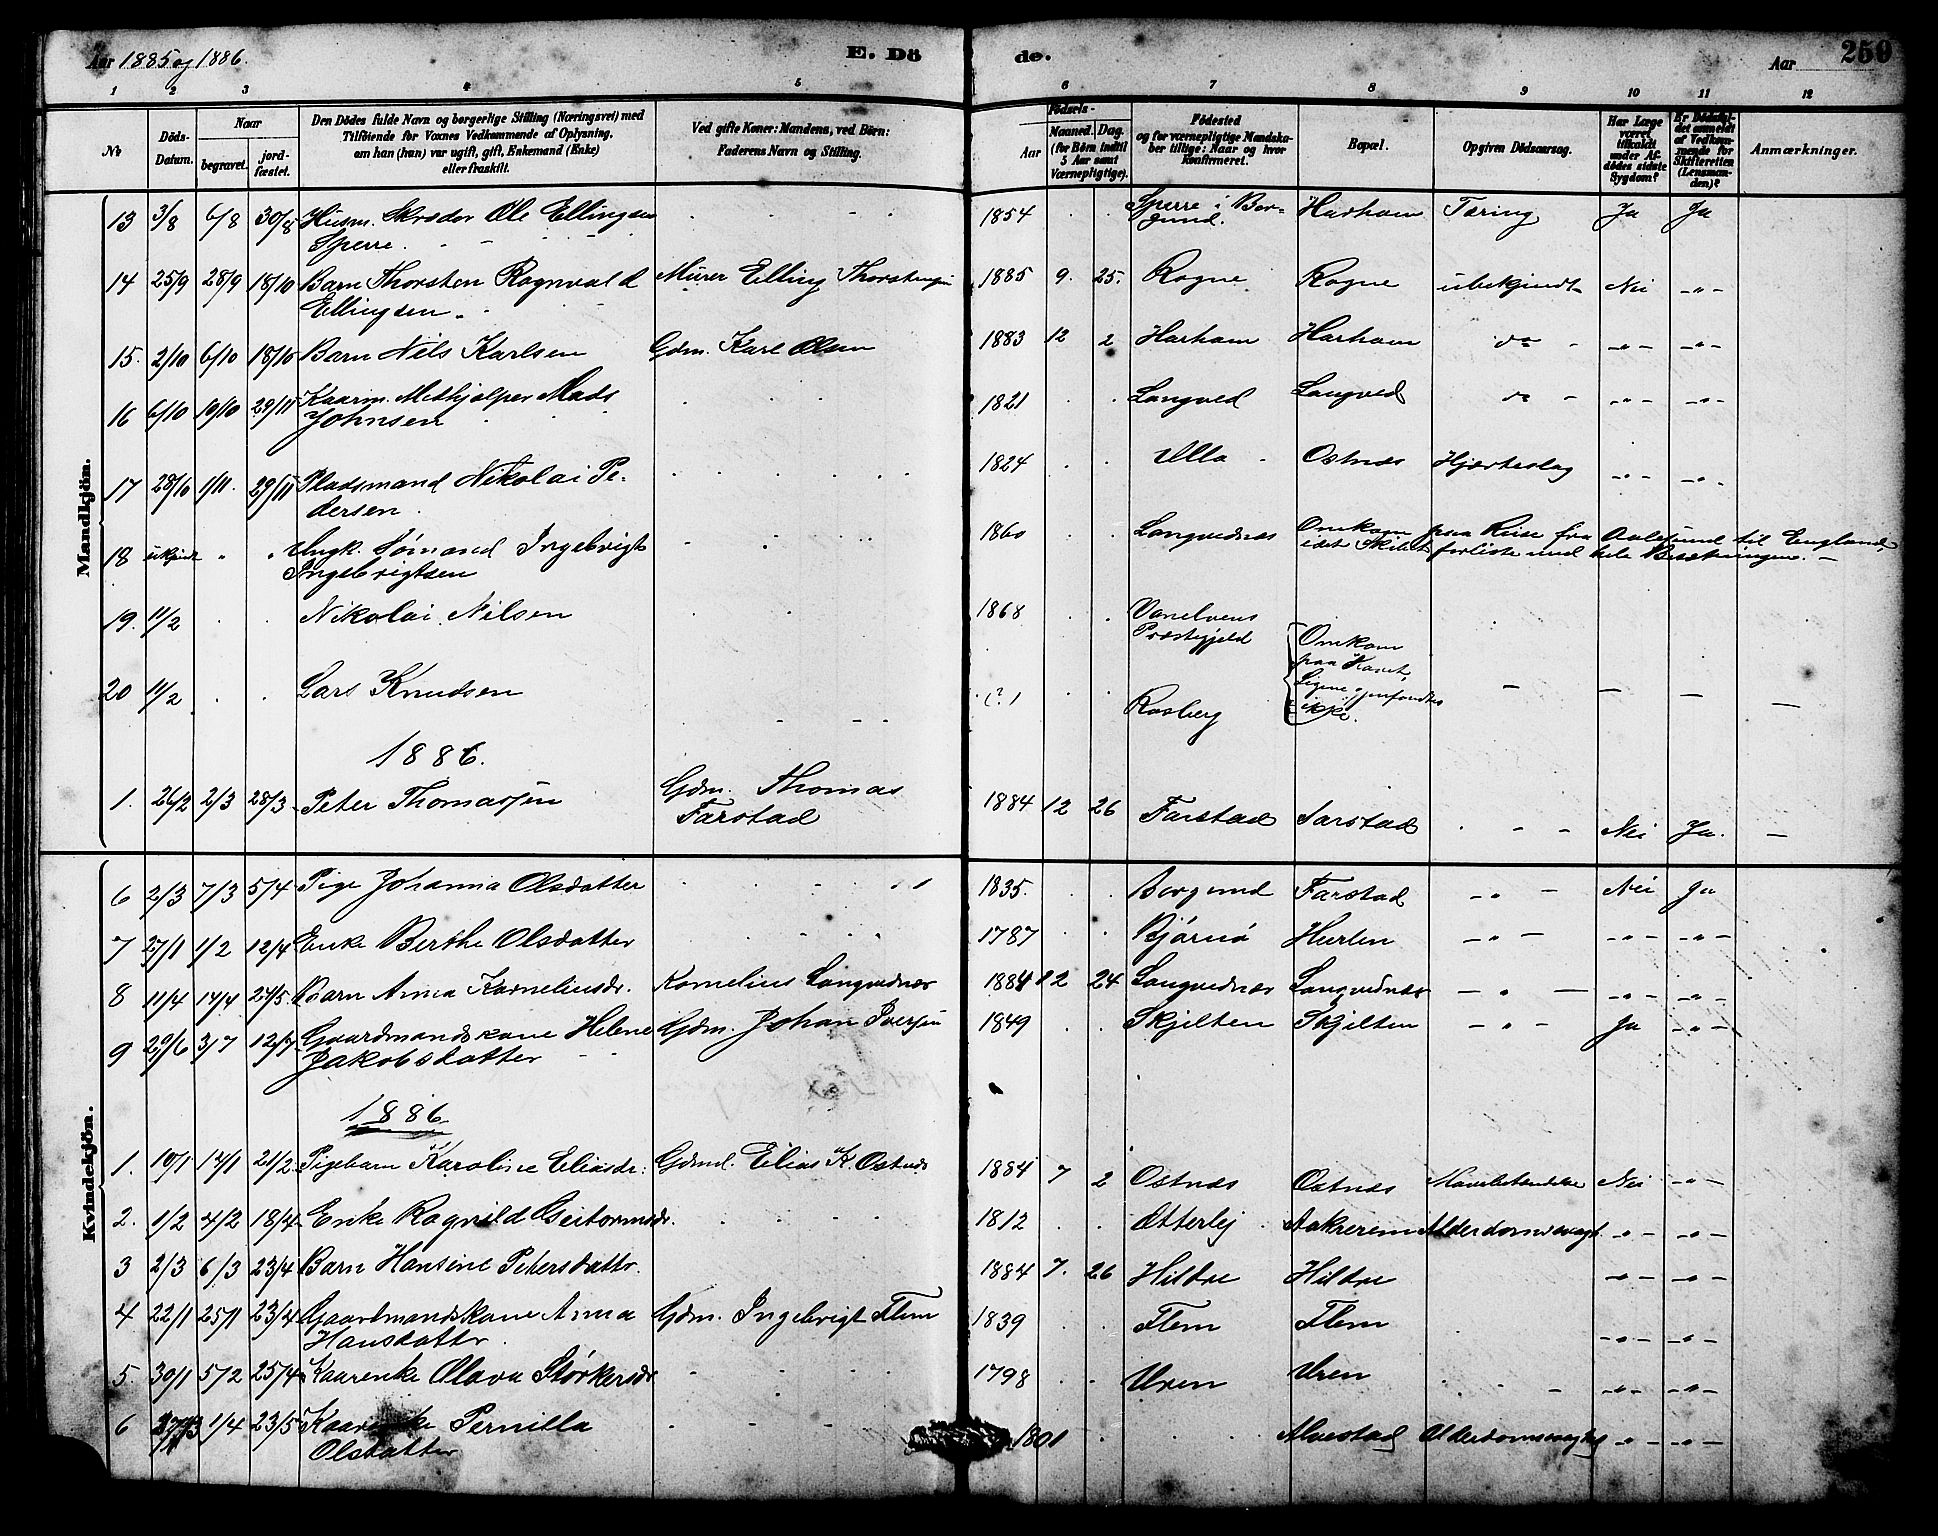 Aar 1885 og 1886. E. Dö de. Aar 250
1 2 3 4 5 6 7 8 9 10 11 12
No Döds-Datum. Naar begravet. jordfæstet. Den Dödes fulde Navn og borgerlige Stilling (Næringsvei) med Tilföiende for Voxnes Vedkommende af Oplysning, om han (hun) var ugift, gift, Enkemand (Enke) eller fraskilt. Ved gifte Koner: Mandens, ved Börn: Faderens Navn og Stilling. Födsels- Aar Maaned. Dag. (for Börn indtil 5 Aar samt Værnepligtige). Födested og for værnepligtige Mandskaber tillige: Naar og hvor Konfirmeret. Bopæl. Opgiven Dödsaarsag. Har Læge været tilkaldt under Afdödes sidste Sygdom? Er Dödsfaldet anmeldt af Vedkommende for Skifteretten (Lensmanden)? Anmærkninger.
Mandkjön.
13 3/8 6/8 30/8 Husm. Skræder Ole Ellingsen 1854 Sperre i Bor- Harham Tæring Ja Ja
Sperre. gund.
14 25/9 28/9 18/10 Barn Thorsten Rognvald Murer Elling Thorstensen 1885 9. 25. Rogne Rogne ubekjendt Nei -"-
Ellingsen.
15. 2/10 6/10 18/10 Barn Nils Karlsen Gdm. Karl Olsen 1883 12 2 Harham Harham do -"- -"-
16 6/10 10/10 29/11 Kaarm. Methjælper Mads 1821 Longved Longved do -"- -"-
Johnsen
17 28/10 1/11. 29/11 Pladsmand Nikolai Pe- 1824 Ulla Ostnæs Hjærteslag -"- -"-
dersen.
18 ukjendt " " Ungk. Sømand Ingebrigt 1860 Longvednæs Omkom paa Reise fra Aalesund til England,
Ingebrigtsen idet Skibet forliste med hele Besætningen. -
19. 11/2 Nikolai Nilsen 1868 Vanelvens
Præstegjeld Omkom
20 11/2 Lars Knudsen (?) Rosberg paa Havet,
Ligene gjenfandtes
ikke.
1886.
1. 26/2 2/3 28/3 Peter Thomassen Gdm. Thomas 1884 12 26 Farstad Farstad Nei Ja.
Farstad
Kvindekjön.
6 2/3 7/3 5/4 Pige Johanna Olsdatter 1835. Borgund Farstad -"- Nei Ja
7 27/1 1/2 12/4 Enke Berthe Olsdatter 1787 Bjørnø Hurlen -"- -"- -"-
8 11/4 17/4 24/5 Barn Anna Korneliusdr. Kornelius Longvednæs 1884 12 24 Longvednæs Longvednæs -"- -"- -"-
9 29/6 3/7 12/7 Gaardmandskone Helene Gdm. Johan Iversen 1849 Skjelten Skjelten -"- Ja -"-
Jakobsdatter
1886
1. 10/1 17/1 21/2 Pigebarn Karoline Eliasdr. Gdmd. Elias K. Ostnæs 1884 7 2 Ostnæs Ostnæs Nei -"-
2. 1/2 4/2 18/4 Enke Ragnild Geitormsdr. 1812 Otterlej Aakrerem Alderdomssvagh. -"- -"-
3 2/3 6/3 23/4 Barn Hansine Petersdattr. 1884 7. 26 Hildre Hildre -"- -"-
4 22/1 25/1 23/4 Gaardmandskone Anna Gdm. Ingebrigt Flem 1839 Flem Flem -"- -"-
Hansdattr.
5 30/1 5/2 25/4 Kaarenke Olava Størkersdr 1798 Uren Uren -"- -"-
6 1/4 23/5 Kaarenke Pernilla 1801 Alvestad Alderdomssvaghed -"- -"-
Olsdatter